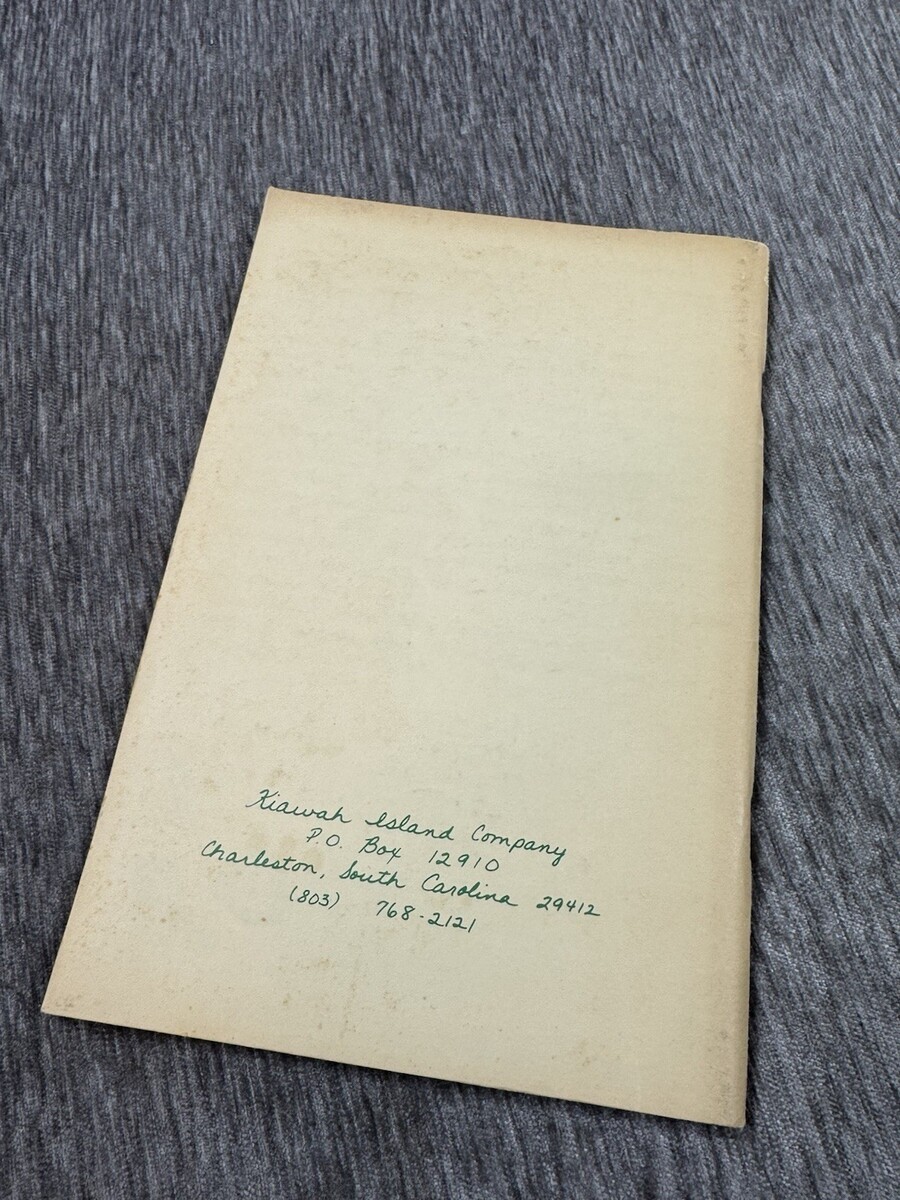 Kiawah Island Company
P.O. Box 12910
Charleston, South Carolina 29412
(803) 768-2121